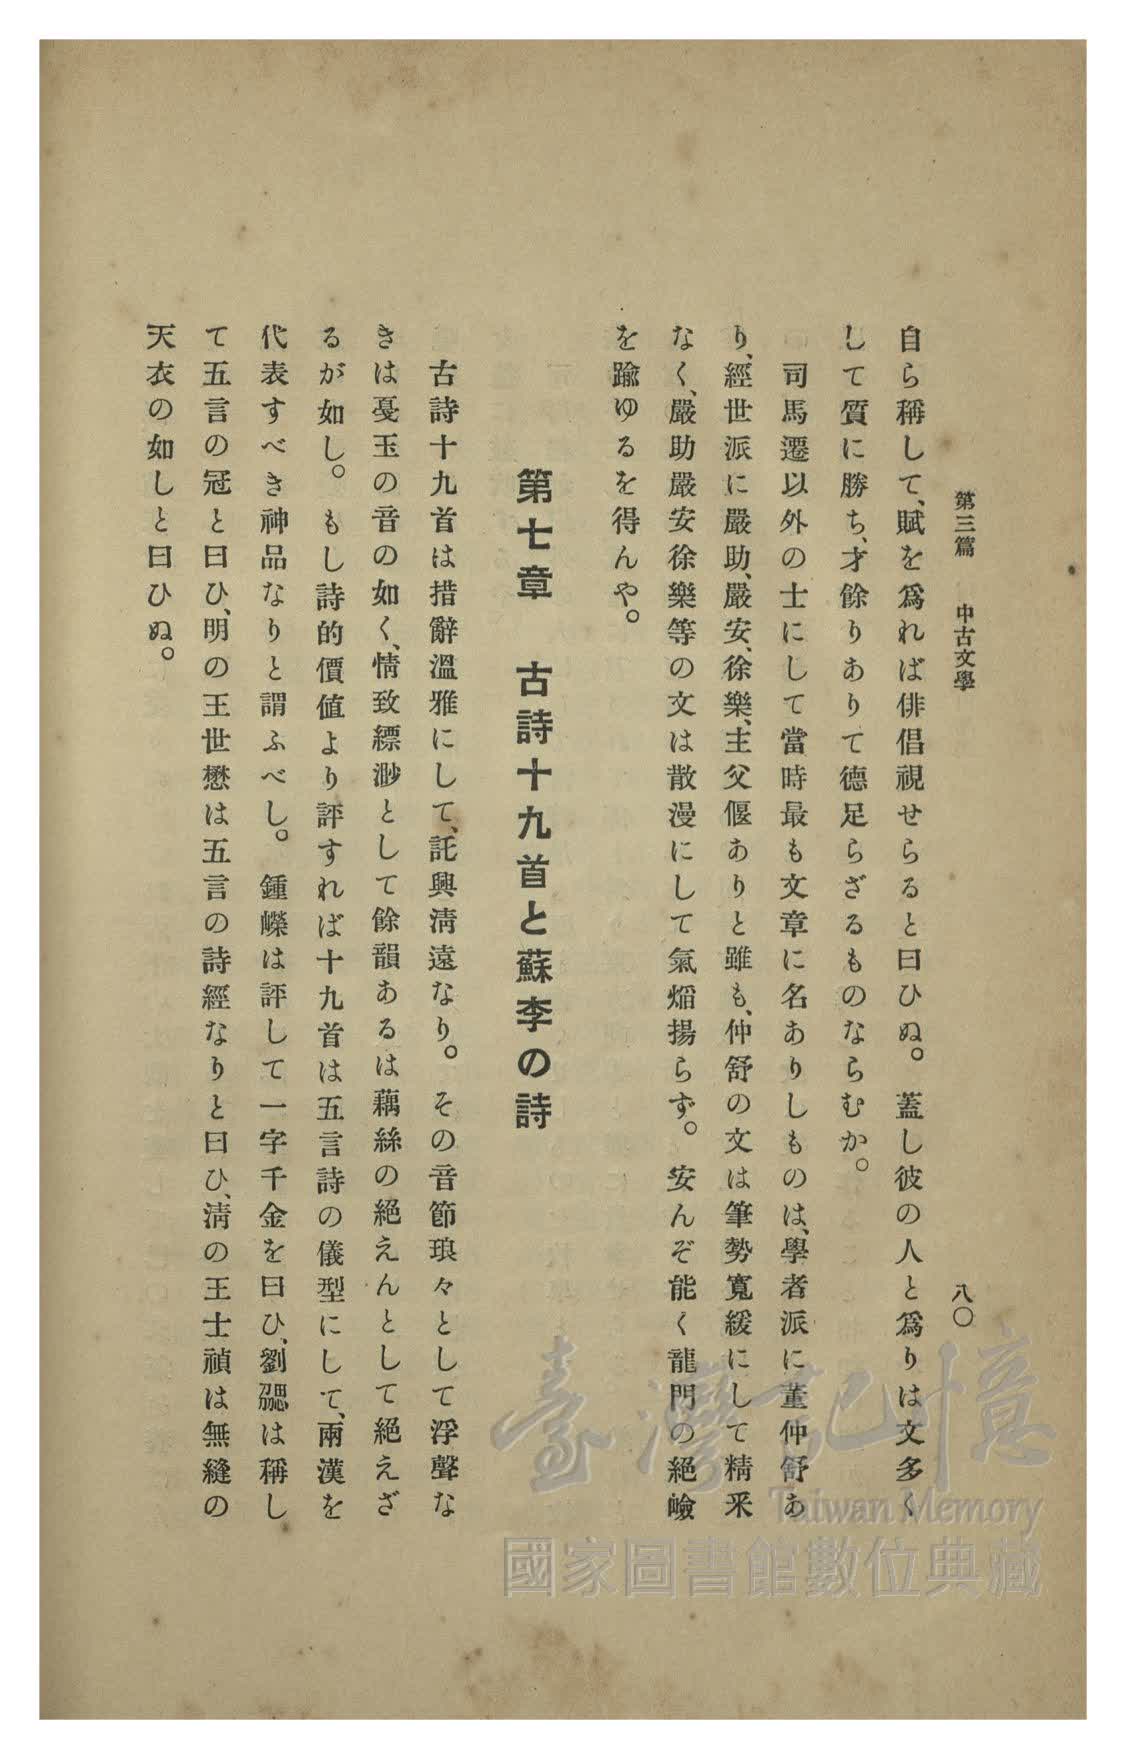 第三篇　中古文學　八〇
自ら稱して、賦を爲れば俳倡視せらると曰ひぬ。蓋し彼の人と爲りは文多く
して質に勝ち、才餘りありて德足らざるものならむか。
司馬遷以外の士にして當時最も文章に名ありしものは、學者派に董仲舒あ
り、經世派に嚴助、嚴安、徐樂、主父偃ありと雖も、仲舒の文は筆勢寬緩にして精釆
なく、嚴助嚴安徐樂等の文は散漫にして氣焰揚らず。安んぞ能く龍門の絕嶮
を踰ゆるを得んや。
第七章　古詩十九首と蘇李の詩
古詩十九首は措辭溫雅にして、託興淸遠なり。その音節琅々として浮聲な
きは戞玉の音の如く、情致縹渺として餘韻あるは藕絲の絕えんとして絕えざ
るが如し。もし詩的價値より評すれば十九首は五言詩の儀型にして、兩漢を
代表すべき神品なりと謂ふべし。鍾嶸は評して一字千金を曰ひ、劉勰は稱し
て五言の冠と曰ひ、明の王世懋は五言の詩經なりと曰ひ、淸の王士禎は無縫の
天衣の如しと曰ひぬ。
臺灣記憶
Taiwan Memory
國家圖書館數位典藏